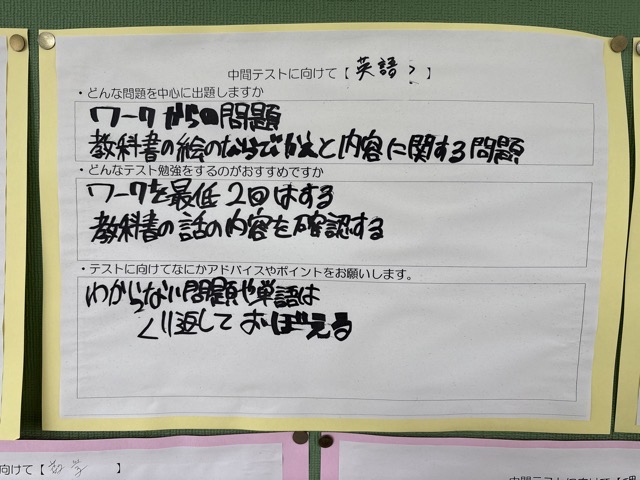 中間テストに向けて【英語】
・どんな問題を中心に出題しますか
ワークからの問題
教科書の絵のならびかえと内容に関する問題
・どんなテスト勉強をするのがおすすめですか
ワークを最低2回はする
教科書の話の内容を確認する
・テストに向けてなにかアドバイスやポイントをお願いします。
わからない問題や単語は
くり返しておぼえる
向けて【数学】
中間テストに向けて【理